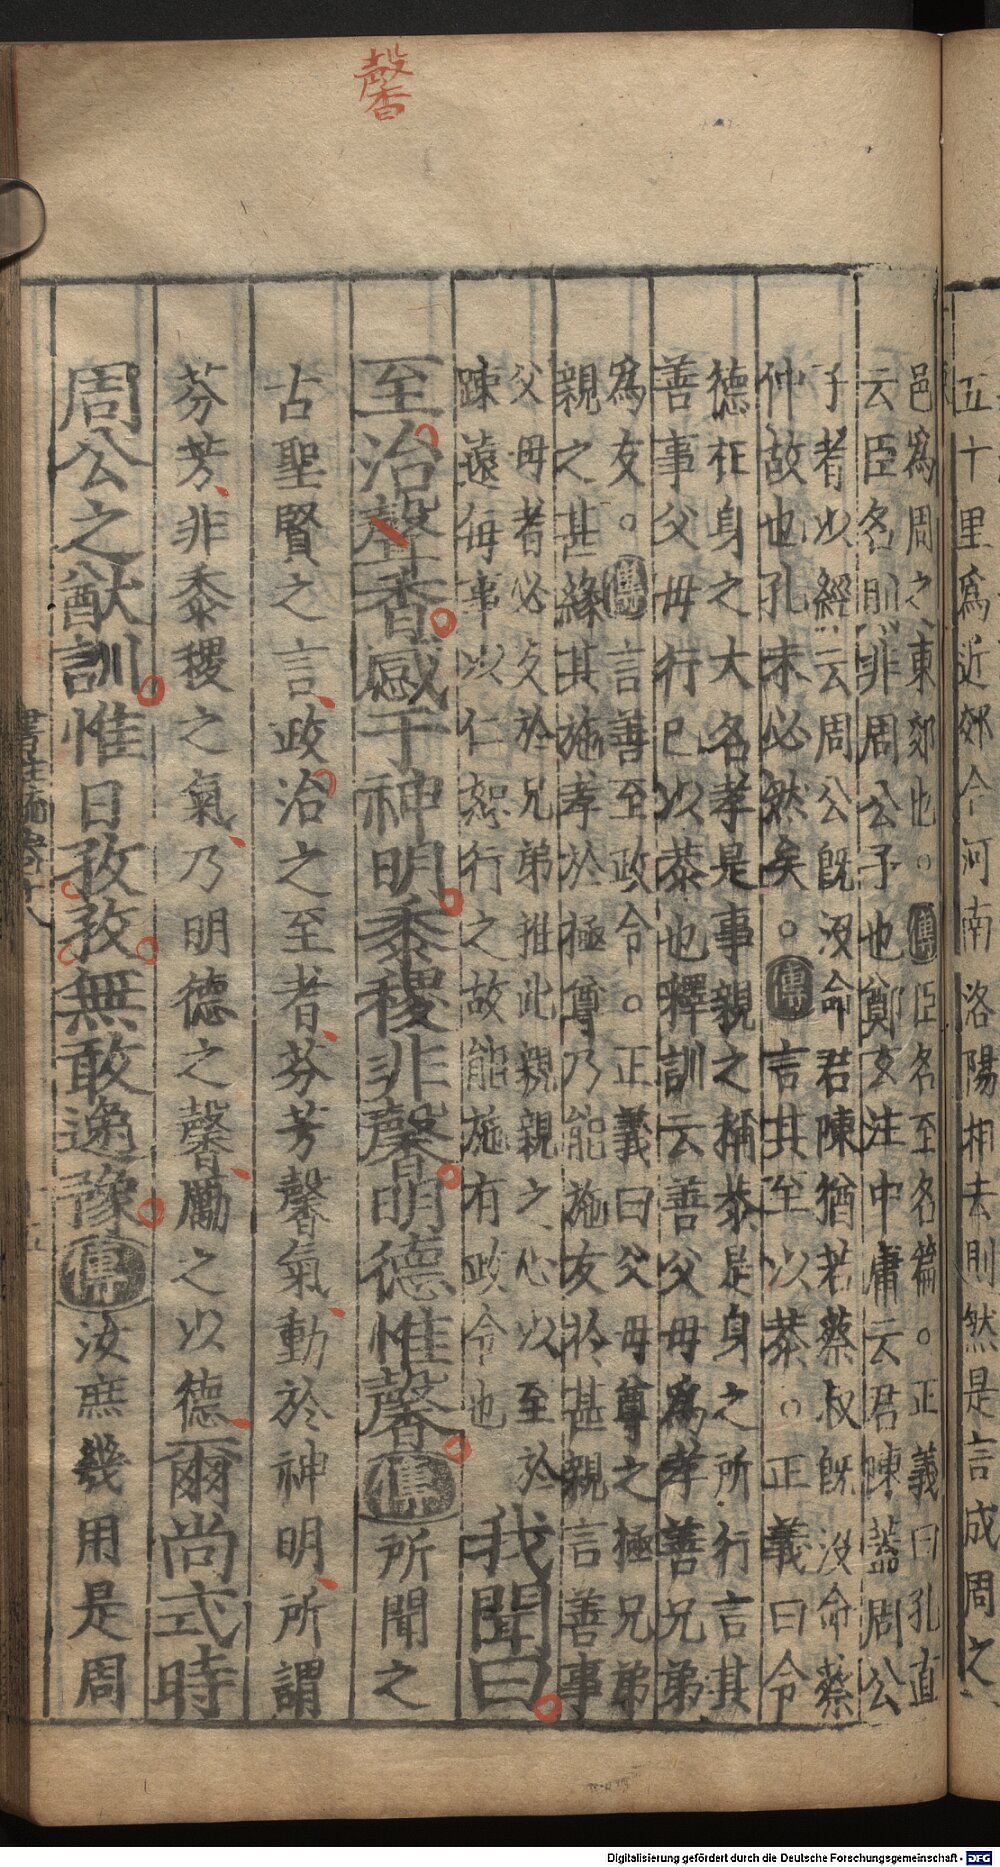 馨
五十里爲近郊今河南洛陽相去則然是言成周之
邑爲周之東郊也。傳臣名至名篇。正義曰孔直
云臣名則非周公子也鄭玄注中庸云君陳蓋周公
子者以經云周公旣沒命君陳猶若蔡叔旣沒命蔡
仲故也孔未必然矣。傳言其至以恭。正義曰令
德在身之大名孝是事親之稱恭是身之所行言其
善事父母行已以恭也釋訓云善父母爲孝善兄弟
爲友。傳言善至政令。正義曰父母尊之極兄弟
親之甚緣其施孝於極尊乃能施友於甚親言善事
父母者必友於兄弟推此親親之心以至於
踈遠每事以仁恕行之故能施有政令也我聞曰
至治馨香感于神明黍稷非馨明德惟馨傳所聞之
古聖賢之言政治之至者芬芳馨氣動於神明所謂
芬芳非黍稷之氣乃明德之馨勵之以德爾尚式時
周公之猷訓惟日孜孜無敢逸豫傳汝庶幾用是周
Digitalisierung gefördert durch die Deutsche Forschungsgemeinschaft - DFG